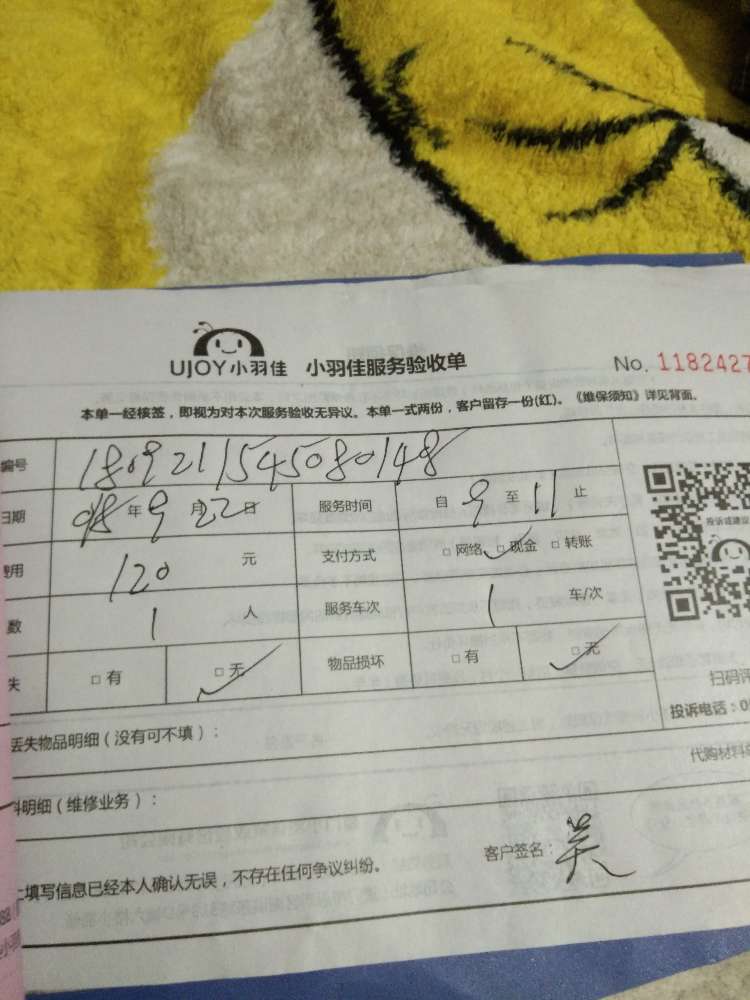 UJOY小羽佳 小羽佳服务验收单 No. 1182427
本单一经核签，即视为对本次服务验收无异议。本单一式两份，客户留存一份(红)。《维保须知》详见背面。
编号 1809211545080148
日期 18年9月22日 服务时间 自9至11止
费用 120元 支付方式 □网络 □现金 □转账
数 1人 服务车次 1 车/次
失 □有 □无 物品损坏 □有 □无
投诉或建议
扫码评
投诉电话：0
丢失物品明细（没有可不填）：
代购材料
料明细（维修业务）：
上填写信息已经本人确认无误，不存在任何争议纠纷。
客户签名：吴